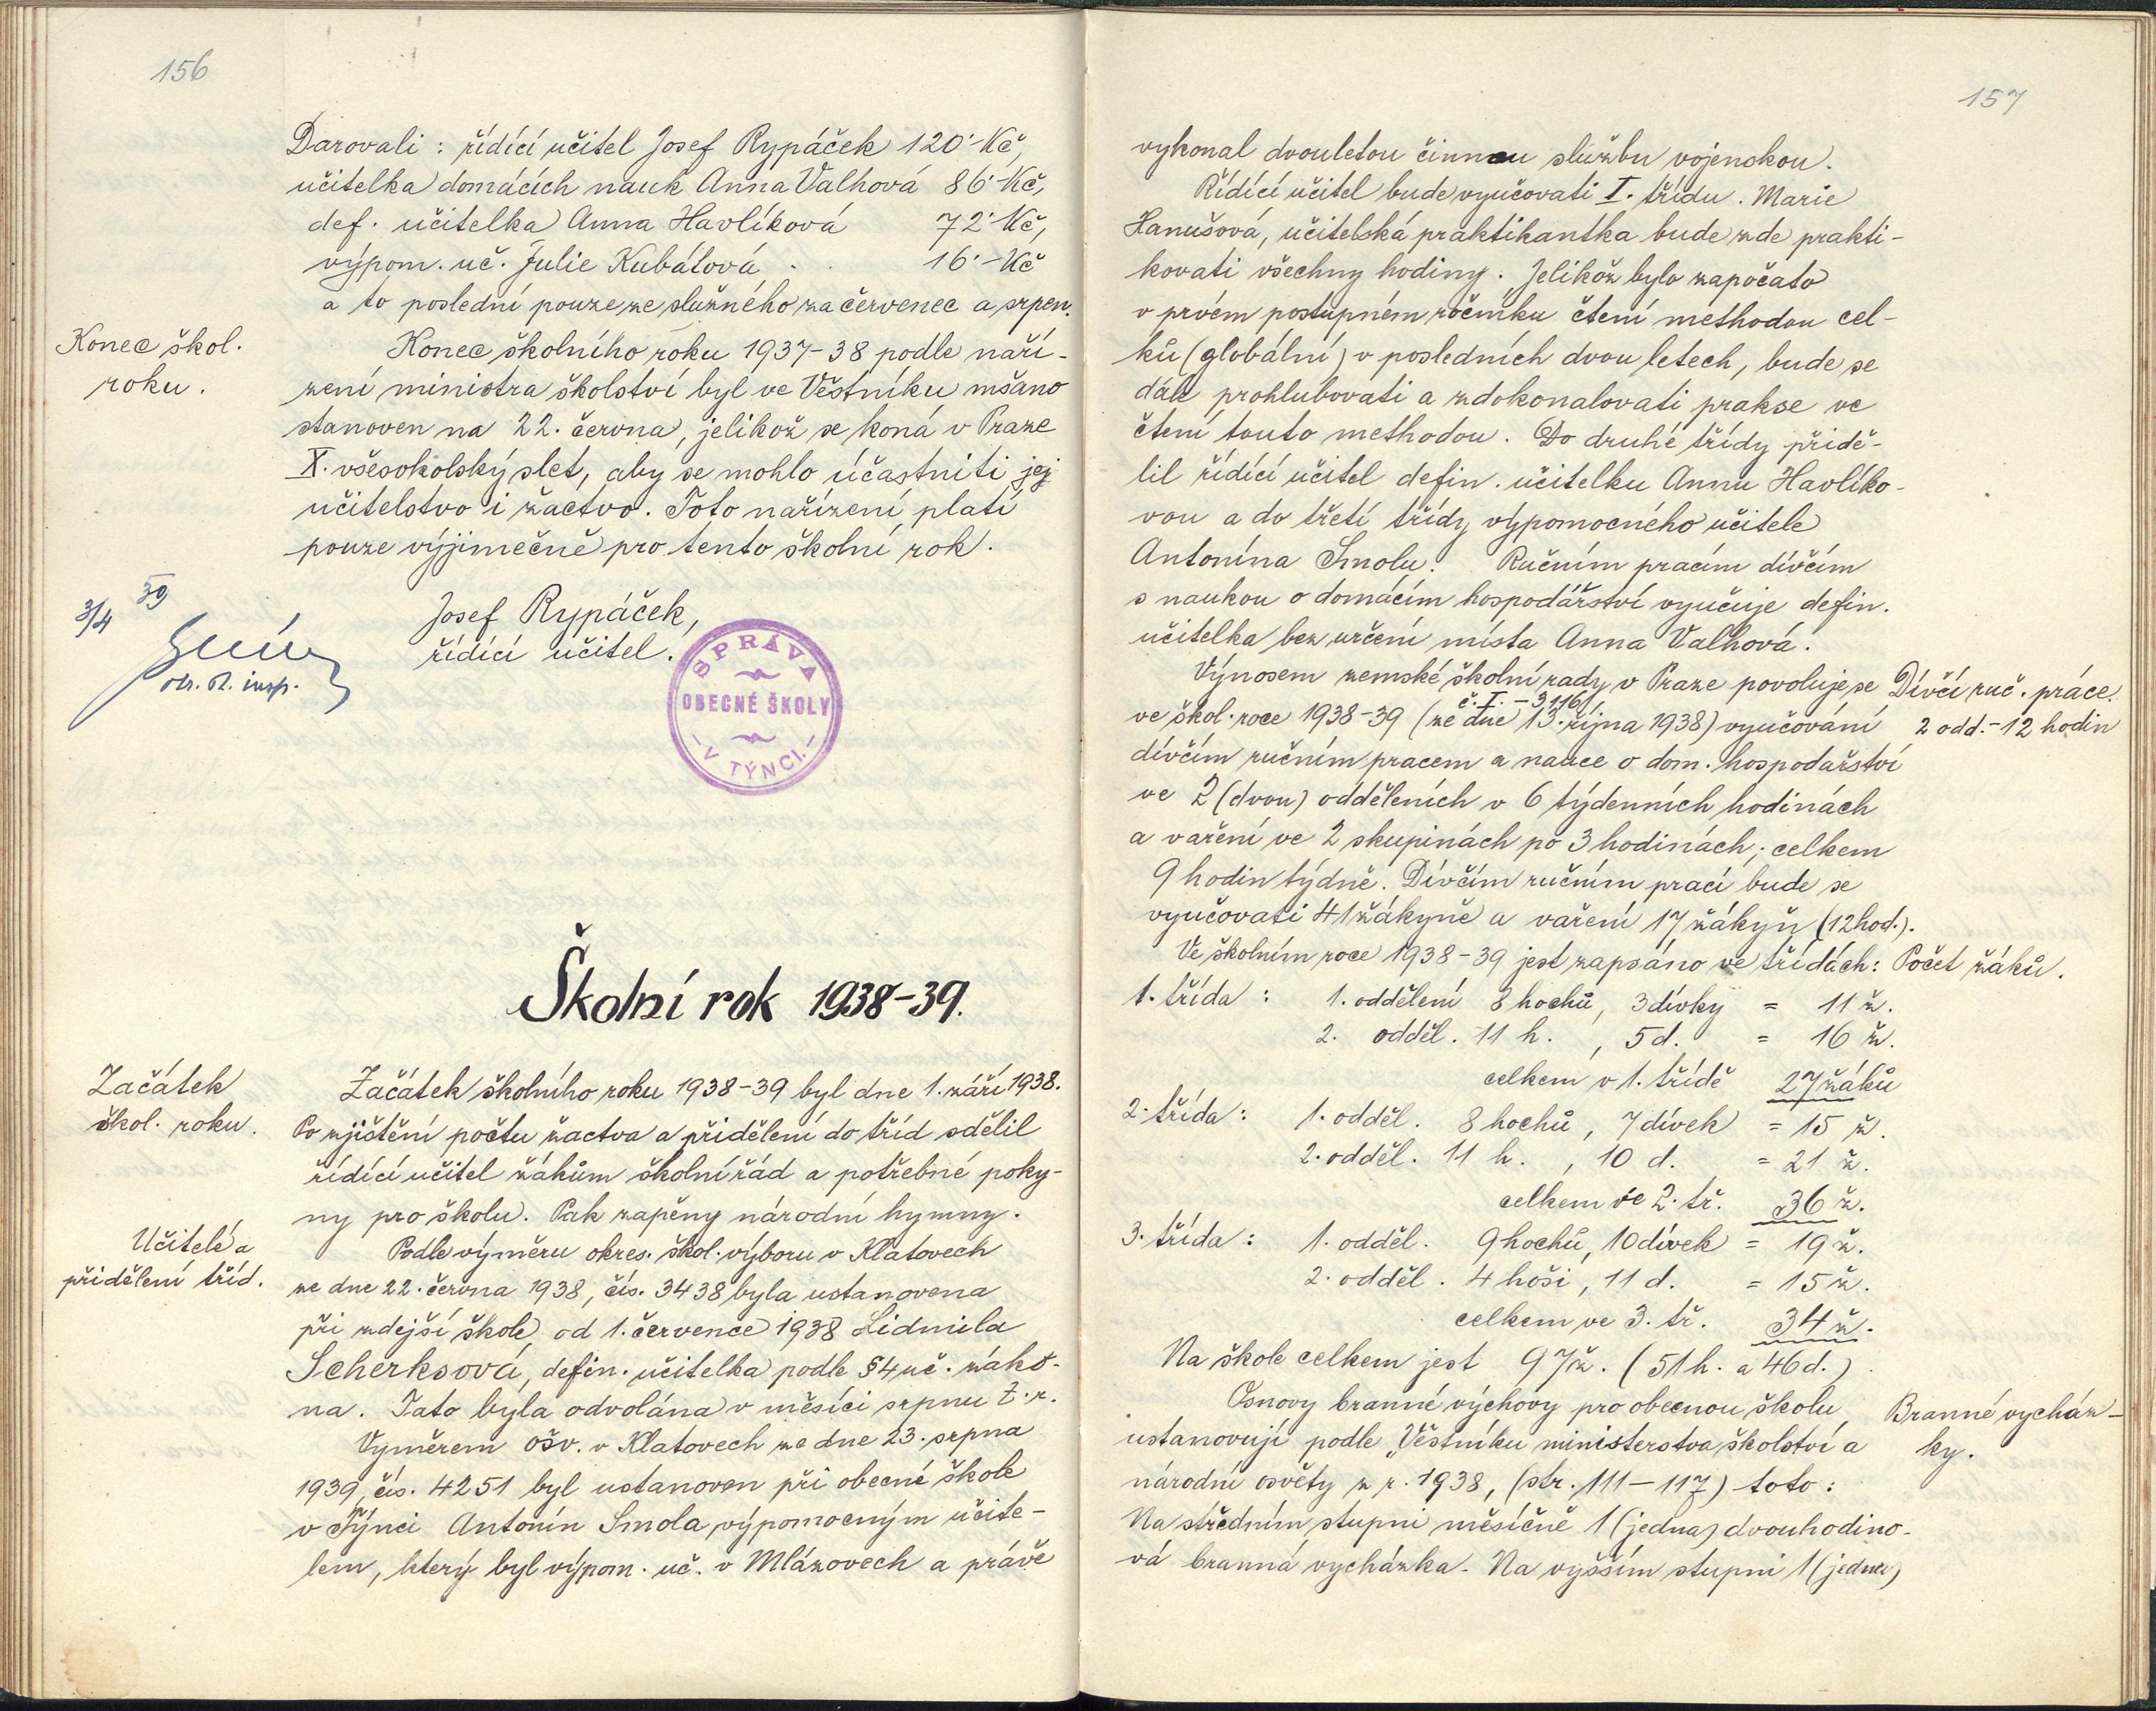 156
Darovali: řídící učitel Josef Rypáček 120·-Kč,
učitelka domácích nauk Anna Valhová 86·-Kč,
def. učitelka Anna Havlíková 72·-Kč,
výpom. uč. Julie Kubátová . . 16·-Kč
a to poslední pouze ze služného za červenec a srpen.
Konec škol.
roku.
Konec školního roku 1937-38 podle naří-
zení ministra školství byl ve Věstníku mšano
stanoven na 22. června, jelikož se koná v Praze
X. všesokolský slet, aby se mohlo účastniti jej
učitelstvo i žactvo. Toto nařízení platí
pouze výjimečně pro tento školní rok.
3/4 39
Josef Rypáček,
řídící učitel.
SPRÁVA
OBECNÉ ŠKOLY
- V TÝNCI. -
Školní rok 1938-39.
Začátek
škol. roku.
Začátek školního roku 1938-39 byl dne 1. září 1938.
Po zjištění počtu žactva a přidělení do tříd sdělil
řídící učitel žákům školní řád a potřebné poky-
ny pro školu. Pak zapěny národní hymny.
Učitelé a
přidělení tříd.
Podle výměru okres. škol. výboru v Klatovech
ze dne 22. června 1938, čís. 3438 byla ustanovena
při zdejší škole od 1. července 1938 Lidmila
Scherksová, defin. učitelka podle §4 uč. záko-
na. Tato byla odvolána v měsíci srpnu t.r.
Výměrem ošv. v Klatovech ze dne 23. srpna
1939, čís. 4251 byl ustanoven při obecné škole
v Týnci Antonín Smola výpomocným učite-
lem, který byl výpom. uč. v Mlázovech a právě
157
vykonal dvouletou činnou službu vojenskou.
Řídící učitel bude vyučovati I. třídu. Marie
Hanušová, učitelská praktikantka bude zde prakti-
kovati všechny hodiny. Jelikož bylo započato
v prvém postupném ročníku čtení methodou cel-
ků (globální) v posledních dvou letech, bude se
dále prohlubovati a zdokonalovati prakse ve
čtení touto methodou. Do druhé třídy přidě-
lil řídící učitel defin. učitelku Annu Havlíko-
vou a do třetí třídy výpomocného učitele
Antonína Smolu. Ručním pracím dívčím
s naukou o domácím hospodářství vyučuje defin.
učitelka bez určení místa Anna Valhová.
Výnosem zemské školní rady v Praze povoluje se
Dívčí ruč. práce.
č. I. - 3116/
ve škol. roce 1938-39 (ze dne 13. října 1938) vyučování
2 odd. - 12 hodin
dívčím ručním pracem a nauce o dom. hospodářství
ve 2 (dvou) odděleních v 6 týdenních hodinách
a vaření ve 2 skupinách po 3 hodinách; celkem
9 hodin týdně. Dívčím ručním prací bude se
vyučovati 41 žákyně a vaření 17 žákyň (12 hod.).
Ve školním roce 1938-39 jest zapsáno ve třídách:
Počet žáků.
1. třída: 1. oddělení 8 hochů, 3 dívky = 11 ž.
2. odděl. 11 h. , 5 d. = 16 ž.
celkem v 1. třídě 27 žáků
2. třída: 1. odděl. 8 hochů, 7 dívek = 15 ž.
2. odděl. 11 h. , 10 d. = 21 ž.
celkem ve 2. tř. 36 ž.
3. třída: 1. odděl. 9 hochů, 10 dívek = 19 ž.
2. odděl. 4 hoši, 11 d. = 15 ž.
celkem ve 3. tř. 34 ž.
Na škole celkem jest 97 ž. (51 h. a 46 d.)
Osnovy branné výchovy pro obecnou školu
Branné vycház-
ky.
ustanovují podle „Věstníku ministerstva školství a
národní osvěty z r. 1938, (str. 111-117) toto:
Na středním stupni měsíčně 1 (jedna) dvouhodino-
vá branná vycházka. Na vyšším stupni 1 (jedna)